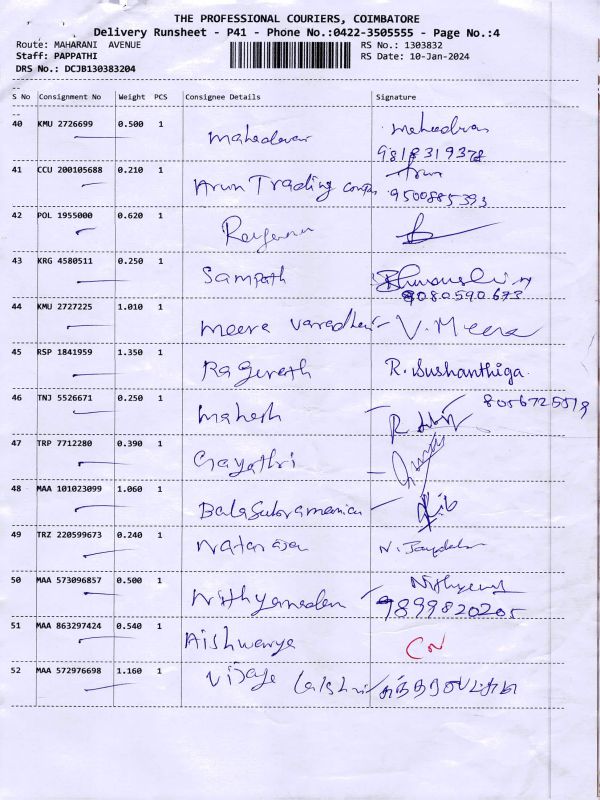 THE PROFESSIONAL COURIERS, COIMBATORE
Delivery Runsheet - P41 - Phone No.:0422-3505555 - Page No.:4
Route: MAHARANI AVENUE RS No.: 1303832
Staff: PAPPATHI RS Date: 10-Jan-2024
DRS No.: DCJB130383204
S No Consignment No Weight PCS Consignee Details Signature
40 KMU 2726699 0.500 1 Mahadevan
9818319378
41 CCU 200105688 0.210 1 Arun Trading Arun
9500885393
42 POL 1955000 0.620 1
43 KRG 4580511 0.250 1 Sampath
9080590673
44 KMU 2727225 1.010 1 meera varadhan V. Meera
45 RSP 1841959 1.350 1 Ragunath R. Sushanthiga
46 TNJ 5526671 0.250 1 Mahesh
47 TRP 7712280 0.390 1 Gayathri
48 MAA 101023099 1.060 1 Balasubramanian
49 TRZ 220599673 0.240 1 Natarajan
50 MAA 573096857 0.500 1 Nithyanandan
9899820205
51 MAA 863297424 0.540 1 Aishwarya
52 MAA 572976698 1.160 1